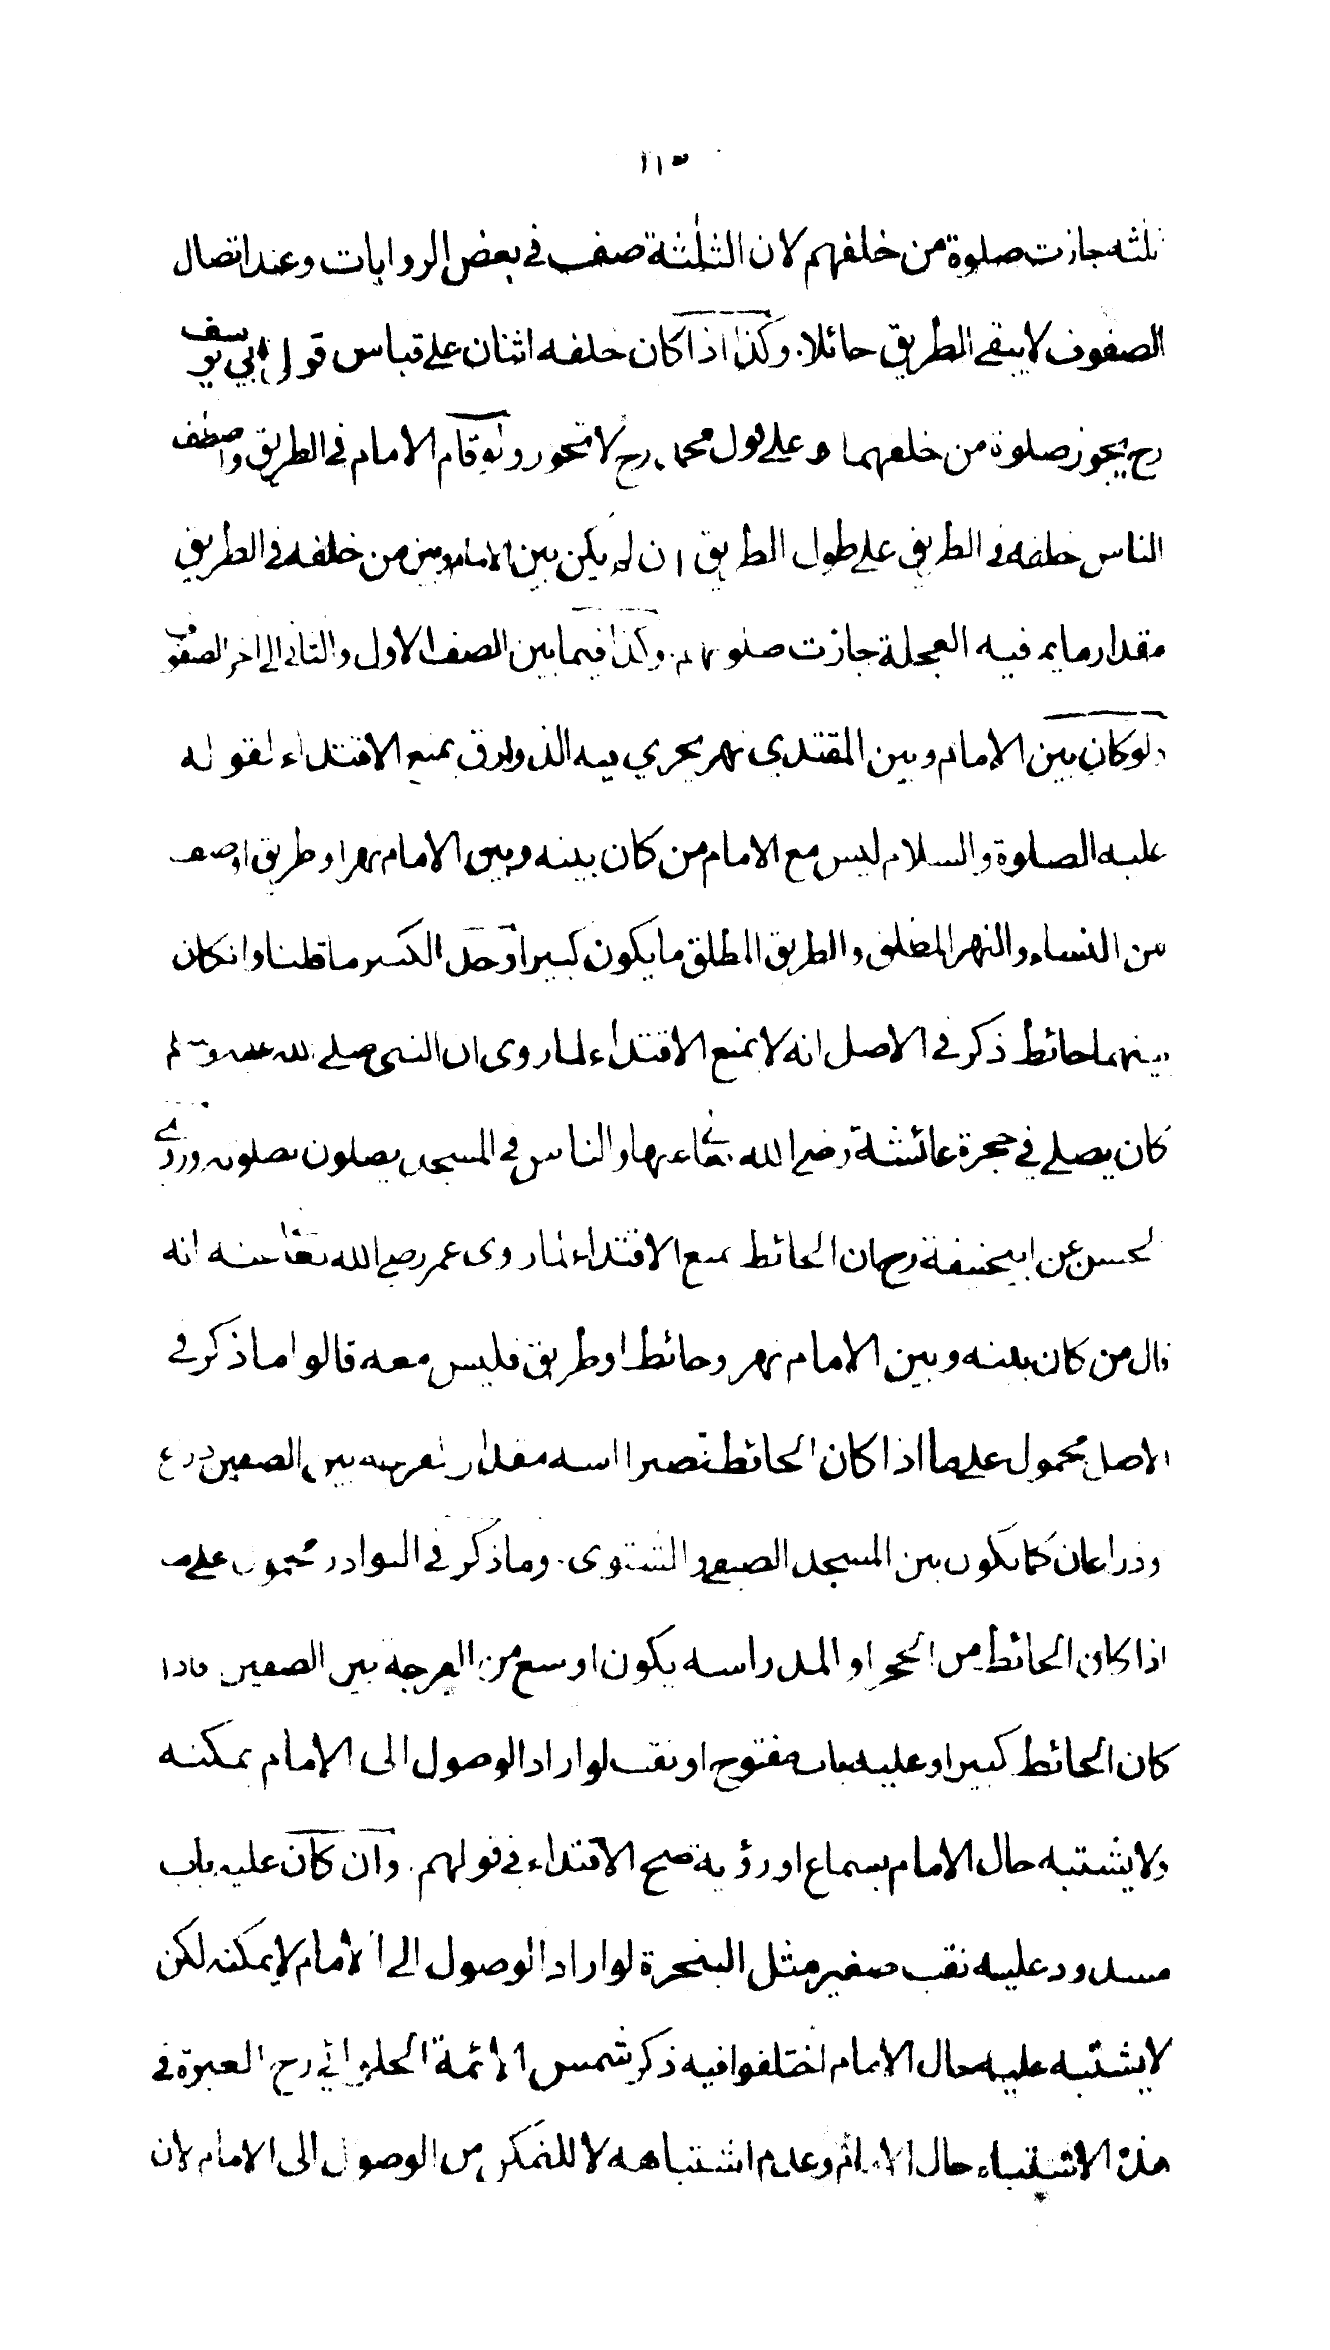 ١١٣
ثلثه جازت صلوة من خلفهم لان الثلثة صف في بعض الروايات وعند اتصال
الصفوف لا يبقى الطريق حائلا. وكذا اذا كان خلفه اثنان على قياس قول ابي يوسف
رح يجوز صلوة من خلفهما وعلى قول محمد رح لا تجوز ولو قام الامام في الطريق واصطف
الناس خلفه في الطريق على طول الطريق ان لم يكن بين الامام وبين من خلفه في الطريق
مقدار ما يمر فيه العجلة جازت صلوتهم. وكذا فيما بين الصف الاول والثاني الى اخر الصفوف
ولو كان بين الامام وبين المقتدي نهر يجري فيه الزورق يمنع الاقتداء لقوله
عليه الصلوة والسلام ليس مع الامام من كان بينه وبين الامام نهر او طريق او صف
من النساء والنهر المطلق والطريق المطلق ما يكون كبيرا وحد الكبير ما قلنا وانكان
بينهما حائط ذكر في الاصل انه لا يمنع الاقتداء لما روى ان النبي صلى الله عليه وسلم
كان يصلي في حجرة عائشة رضي الله تعالى عنها والناس في المسجد يصلون بصلوته وروى
لحسن عن ابيحنيفة رح ان الحائط يمنع الاقتداء لما روى عمر رضي الله تعالى عنه انه
قال من كان بينه وبين الامام نهر وحائط او طريق فليس معه قالوا ما ذكر في
الاصل محمول على ما اذا كان الحائط قصيرا اسه مقدار الفرجة بين الصفين ذراع
وذراعان كما يكون بين المسجد الصيفي والشتوى. وما ذكر في النوادر محمول على ما
اذا كان الحائط من الحجر او المدر اسه يكون اوسع من الفرجة بين الصفين فاذا
كان الحائط كبيرا وعليه باب مفتوح او نقب لو اراد الوصول الى الامام يمكنه
ولا يشتبه حال الامام بسماع او رؤية صح الاقتداء في قولهم. وان كان عليه باب
مسدود عليه نقب صغير مثل البنجرة لو اراد الوصول الى الامام لا يمكنه لكن
لا يشتبه عليه حال الامام اختلفوا فيه ذكر شمس الائمة الحلواني رح العبرة في
هذا الاشتباه حال الامام وعدم اشتباهه لا للتمكن من الوصول الى الامام لان